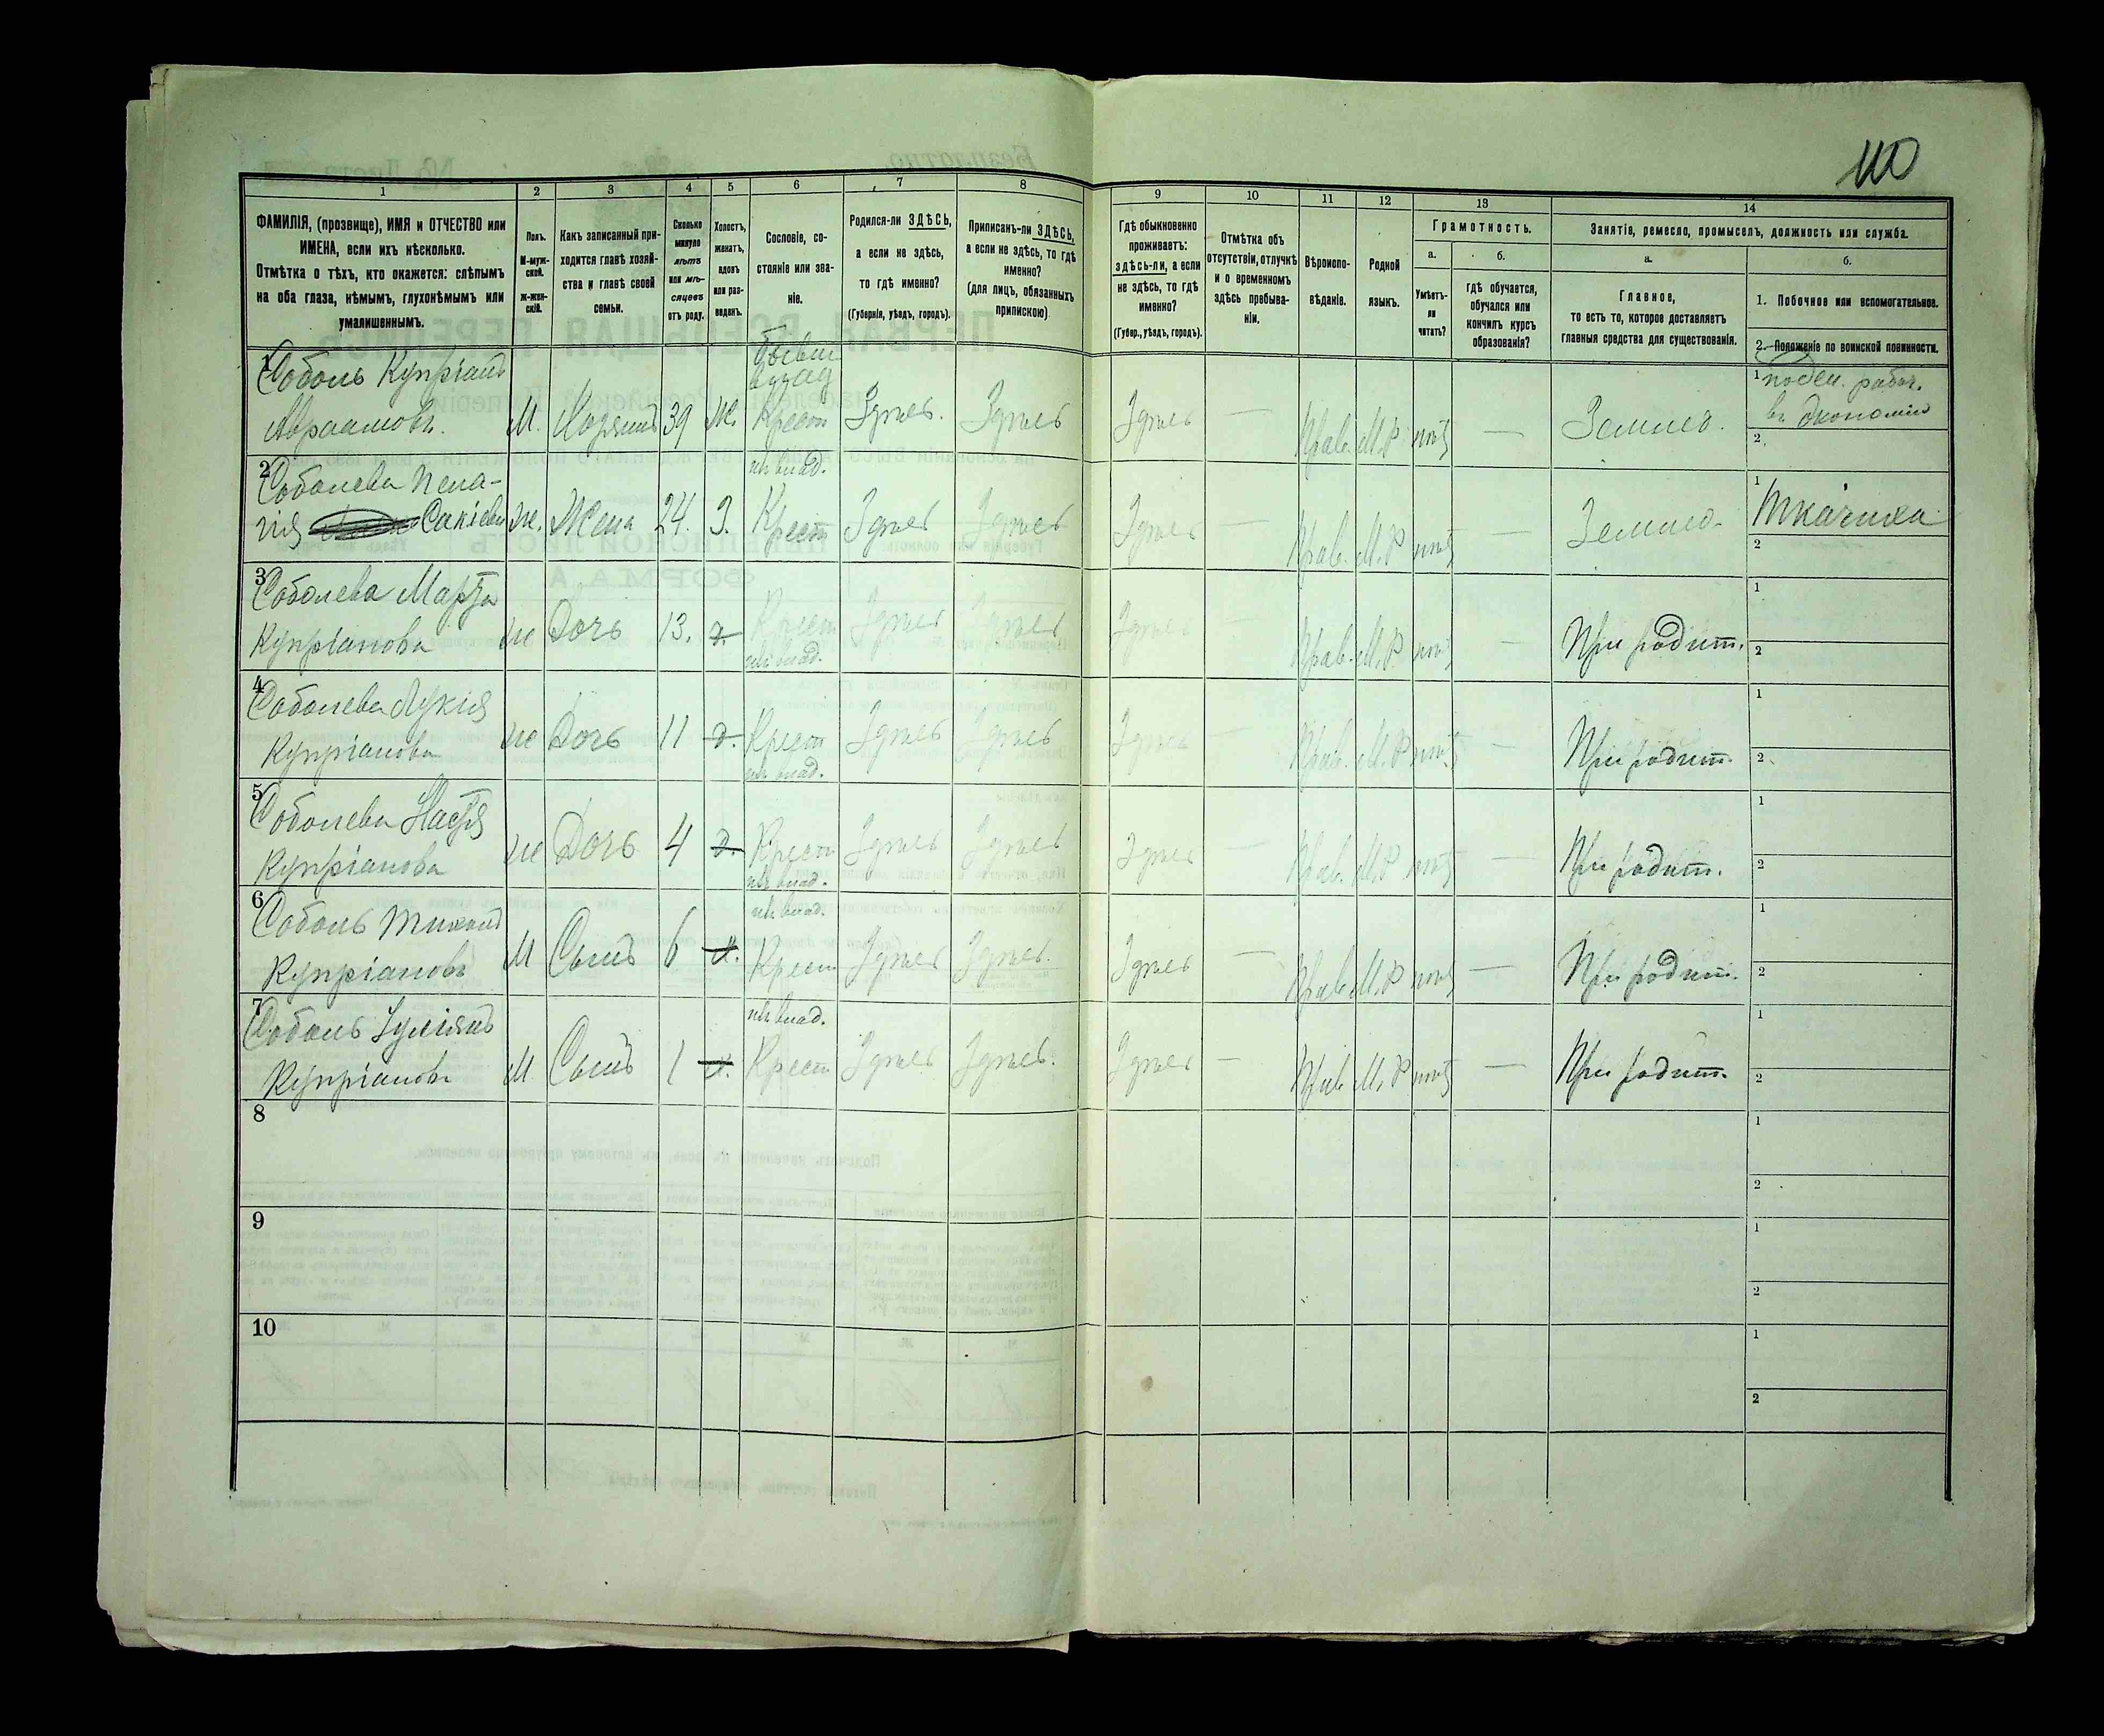 110
1 2 3 4 5 6 7 8 9 10 11 12 13 14
ФАМИЛІЯ, (прозвище), ИМЯ и ОТЧЕСТВО или
ИМЕНА, если ихъ нѣсколько.
Отмѣтка о тѣхъ, кто окажется: слѣпымъ
на оба глаза, нѣмымъ, глухонѣмымъ или
умалишеннымъ.
Полъ.
М-муж-
ской.
ж-жен-
скій.
Какъ записанный при-
ходится главѣ хозяй-
ства и главѣ своей
семьи.
Сколько
минуло
лѣтъ
или мѣ-
сяцевъ
отъ роду.
Холостъ,
женатъ,
вдовъ
или раз-
веденъ.
Сословіе, со-
стояніе или зва-
ніе.
Родился-ли ЗДѢСЬ,
а если не здѣсь,
то гдѣ именно?
(Губернія, уѣздъ, городъ).
Приписанъ-ли ЗДѢСЬ,
а если не здѣсь, то гдѣ
именно?
(для лицъ, обязанныхъ
припискою)
Гдѣ обыкновенно
проживаетъ:
здѣсь-ли, а если
не здѣсь, то гдѣ
именно?
(Губер., уѣздъ, городъ).
Отмѣтка объ
отсутствіи, отлучкѣ
и о временномъ
здѣсь пребыва-
ніи.
Вѣроиспо-
вѣданіе.
Родной
языкъ.
Грамотность.
а.
Умѣетъ-
ли
читать?
б.
гдѣ обучается,
обучался или
кончилъ курсъ
образованія?
Занятіе, ремесло, промыселъ, должность или служба.
а.
Главное,
то есть то, которое доставляетъ
главныя средства для существованія.
б.
1. Побочное или вспомогательное.
2. Положеніе по воинской повинности.
1 Соболь Купріанъ
Авраамовъ. М. Хозяинъ 39 Ж. Крест Здѣсь. Здѣсь Здѣсь — Прав. М.Р нѣтъ — Землед.
1 поден. рабоч.
въ экономіи
2.
2 Соболева Пела-
гія Сакіева Ж. Жена 24. З. Крест Здѣсь Здѣсь Здѣсь — Прав. М.Р нѣтъ — Землед.
из влад.
1 Ткачиха
2
3 Соболева Марѳа
Купріанова Ж Дочь 13. Д. Крест Здѣсь Здѣсь Здѣсь — Прав. М.Р. нѣтъ — При родит.
из влад.
1
2
4 Соболева Лукія
Купріанова Ж Дочь 11 Д. Крест Здѣсь Здѣсь Здѣсь — Прав. М.Р нѣтъ — При родит.
из влад.
1
2
5 Соболева Настя
Купріанова Ж Дочь 4 Д. Крест Здѣсь Здѣсь Здѣсь — Прав. М.Р нѣтъ — При родит.
из влад.
1
2
6 Соболь Тихонъ
Купріановъ М Сынъ 6 Х. Крест Здѣсь Здѣсь. Здѣсь — Прав М.Р нѣтъ — При родит.
из влад.
1
2
7 Соболь Іуліанъ
Купріановъ М. Сынъ 1 Х. Крест Здѣсь Здѣсь. Здѣсь — Прав М.Р нѣтъ — При родит.
из влад.
1
2
8
1
2
9
1
2
10
1
2